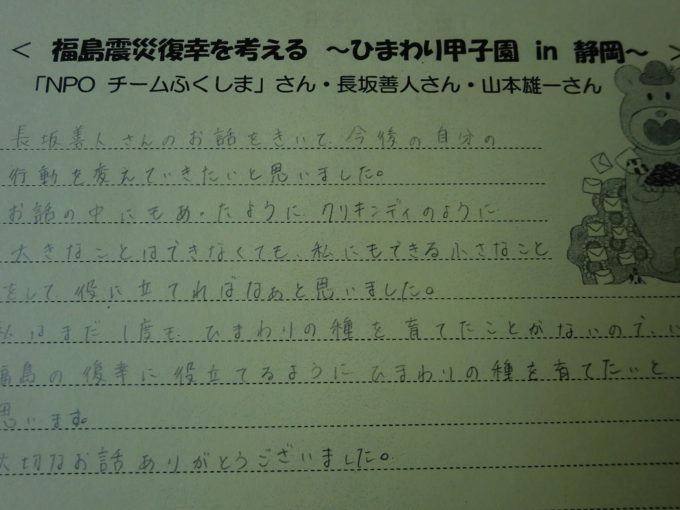 < 福島震災復幸を考える ～ひまわり甲子園 in 静岡～ >
「NPO チームふくしま」さん・長坂善人さん・山本雄一さん
長坂善人さんのお話をきいて、今後の自分の
行動を変えていきたいと思いました。
お話の中にもあったように クリキンディのように
大きなことはできなくても、私にもできる小さなこと
をして 役に立てればなぁと思いました。
私はまだ 1度も、ひまわりの種を育てたことがないので、い
福島の復幸に役立てるように ひまわりの種を育てたいと
思います。
大切なお話ありがとうございました。